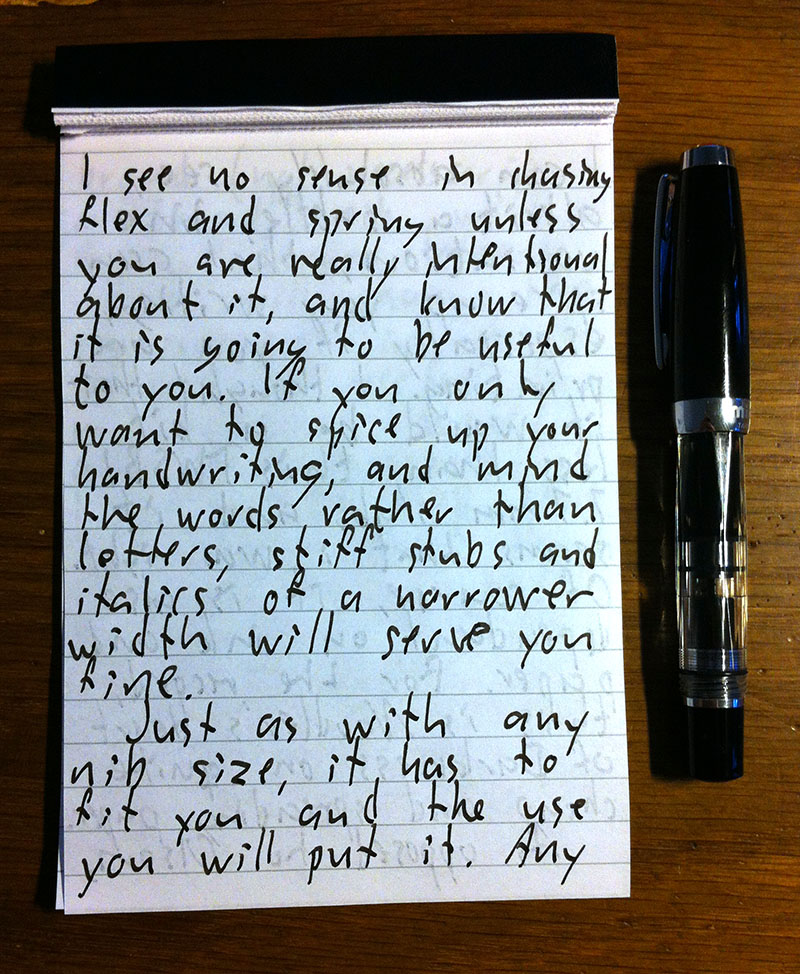 I see no sense in chasing
flex and spring unless
you are really intentional
about it, and know that
it is going to be useful
to you. If you only
want to spice up your
handwriting, and mind
the words rather than
letters, stiff stubs and
italics of a narrower
width will serve you
fine.
Just as with any
nib size, it has to
fit you and the use
you will put it. Any